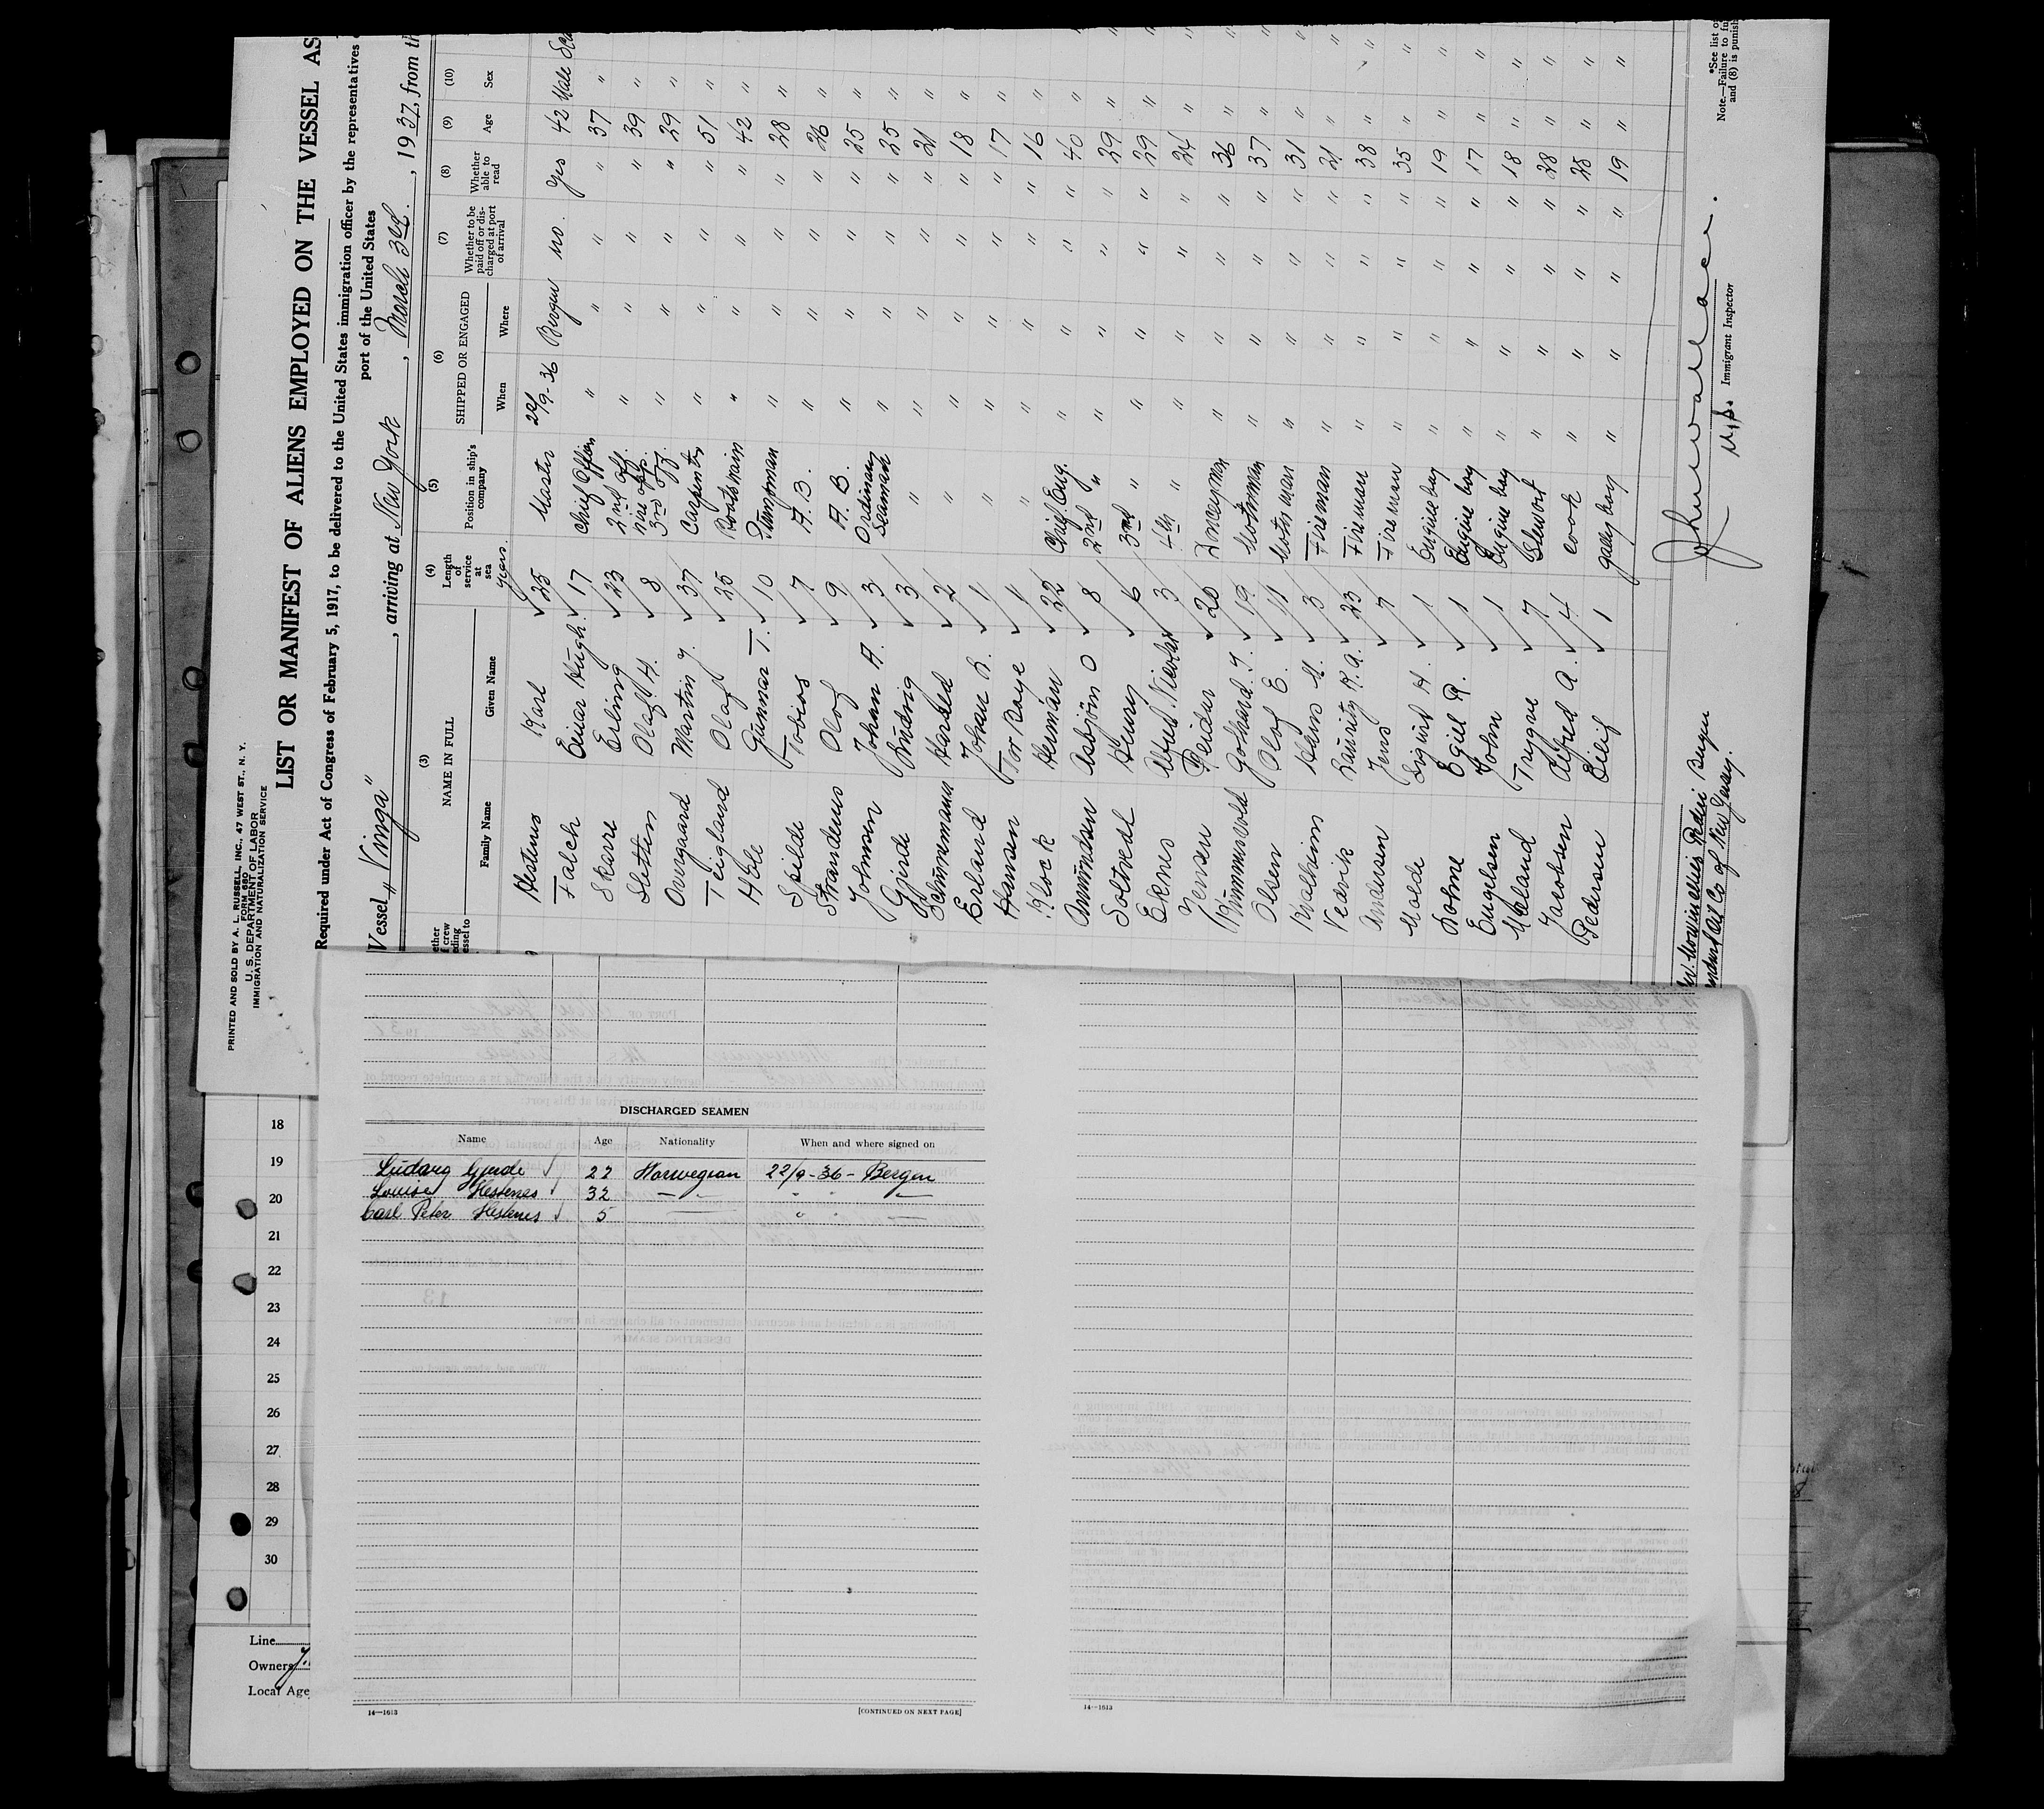 PRINTED AND SOLD BY A. L. RUSSELL, INC., 47 WEST ST., N. Y.
FORM 680
U. S. DEPARTMENT OF LABOR
IMMIGRATION AND NATURALIZATION SERVICE
LIST OR MANIFEST OF ALIENS EMPLOYED ON THE VESSEL AS
Required under Act of Congress of February 5, 1917, to be delivered to the United States immigration officer by the representatives
port of the United States
Vessel „Vinga”, arriving at New York, March 3rd., 1937, from th
(3) (4) (5) (6) (7) (8) (9) (10)
NAME IN FULL Length of service at sea Position in ship's company SHIPPED OR ENGAGED Whether to be paid off or discharged at port of arrival Whether able to read Age Sex
Family Name Given Name When Where
years.
Hestenes Karl 25 Master 22/9-36 Bergen no. yes 42 Male
Falch Einar Hugh. 17 Chief Officer " " " " 37 "
Skare Erling 23 2nd off. " " " " 39 "
Sletten Olaf H. 8 3rd off. " " " " 29 "
Overgaard Martin J. 37 Carpenter " " " " 51 "
Teigland Olaf 25 Boatswain " " " " 42 "
Gunnar T. 10 " " " " 28 "
Spilde Tobias 7 A. B. " " " " 26 "
Strandenes Olof 9 A. B. " " " " 25 "
Johnsen Johan A. 3 Ordinary Seaman " " " " 25 "
Gjerde Ludvig 3 " " " " " 21 "
Schünemann Harald 2 " " " " " 18 "
Erland Johan L. 1 " " " " " 17 "
Hansen Tor Kaye 1 " " " " " 16 "
Klock Herman 22 Chief Eng. " " " " 40 "
Amundsen Asbjörn O 8 2nd " " " " " 29 "
Soltvedt Henry 6 3rd " " " " " 29 "
Eknes Alfred Nicolai 3 4th " " " " " 24 "
Jensen Reidar 20 Donkeyman " " " " 36 "
Kummersvold Gothard J. 19 Motorman " " " " 37 "
Olsen Olof E. 11 Motorman " " " " 31 "
Kvalheim Hans M. 3 Fireman " " " " 21 "
Vedvik Lauritz K. A. 23 Fireman " " " " 38 "
Andersen Jens 7 Fireman " " " " 35 "
Molde Sigurd H. 1 Engine boy " " " " 19 "
Dohme Egil R. 1 Engine boy " " " " 17 "
Engelsen John 1 Engine boy " " " " 18 "
Meland Trygve 7 Stewort " " " " 28 "
Jacobsen Alfred A. 4 cook " " " " 28 "
Pedersen Eilif 1 Gally boy " " " " 19 "
Bergen
Co of New Jersey.
John Wallace.
Immigrant Inspector
*See list of
Note.—Failure to fu
and (8) is punish
DISCHARGED SEAMEN
Name Age Nationality When and where signed on
Ludvig Gjerde 22 Norwegian 22/9-36 - Bergen
Louise Hestenes 32 — " — " " —
Carl Peter Hestenes 5 — " " —
14—1613 [CONTINUED ON NEXT PAGE]
14—1613
18
19
20
21
22
23
24
25
26
27
28
29
30
Line
Owners
Local Age